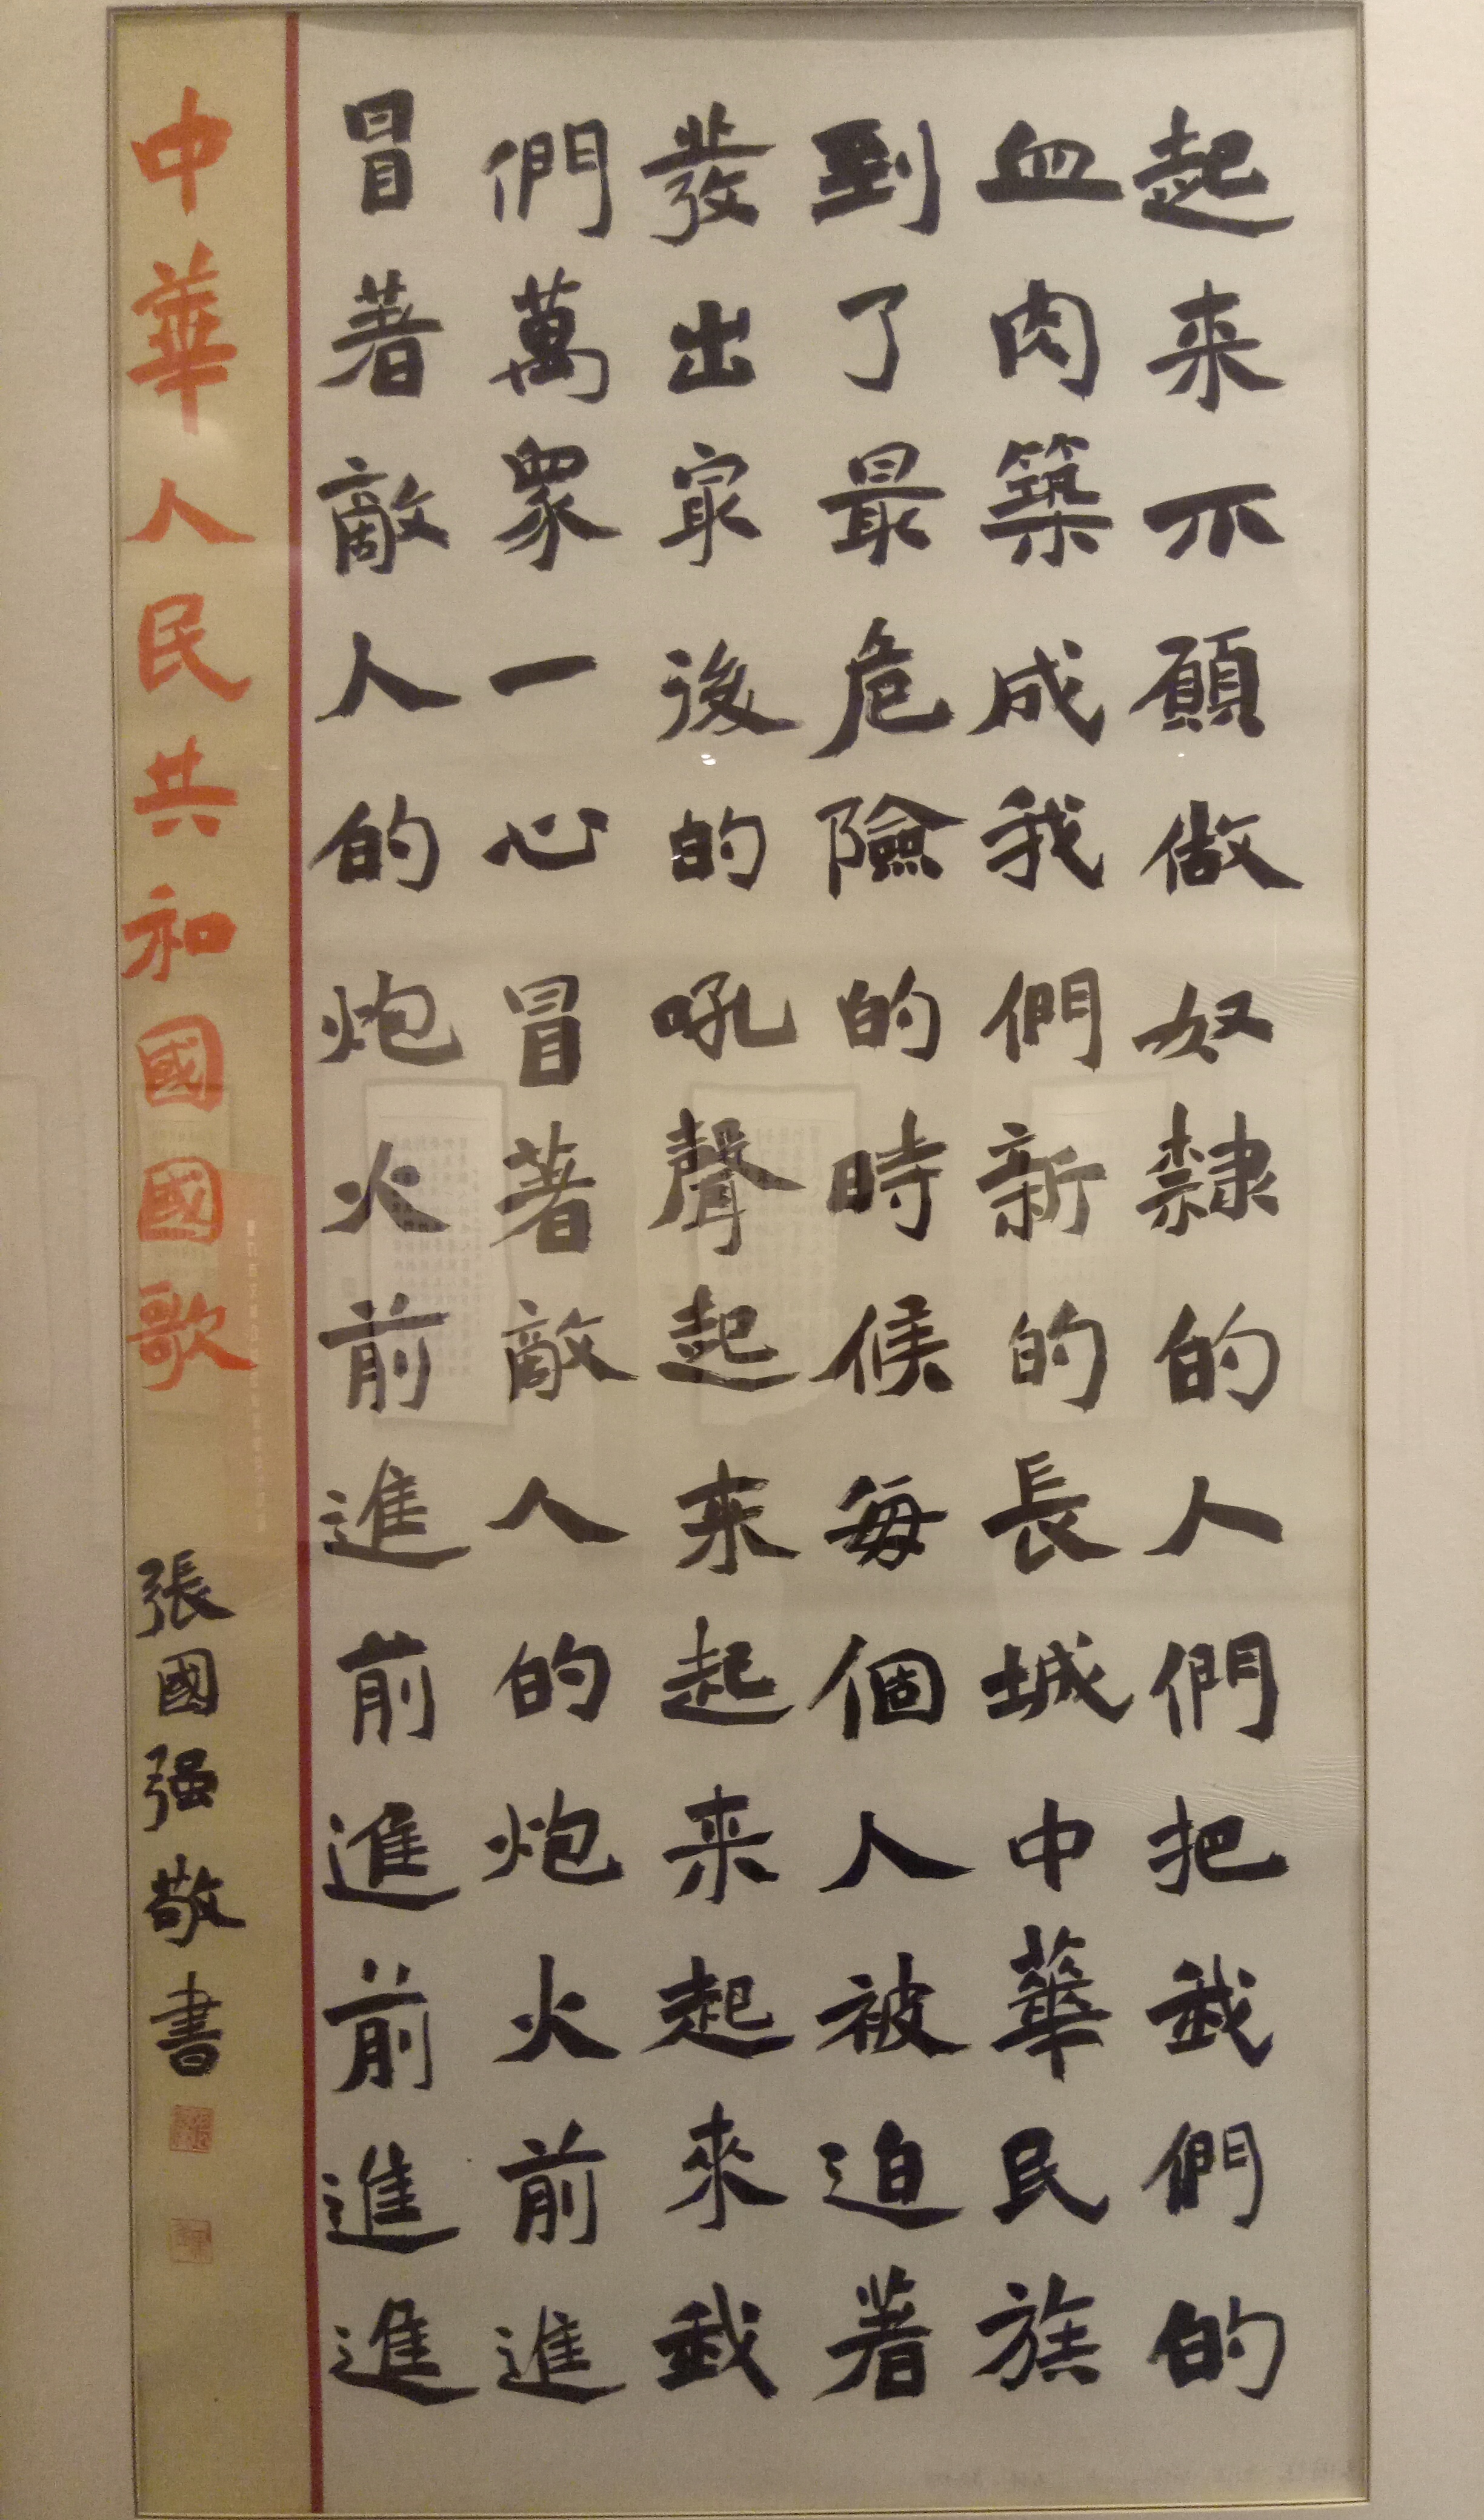 起来不願做奴隸的人們把我們的
血肉築成我們新的長城中華民族
到了最危險的時候每個人被迫著
發出冣後的吼聲起来起来起來我
們萬眾一心冒著敵人的炮火前進
冒著敵人的炮火前進前進前進進
中華人民共和國國歌
張國强敬書